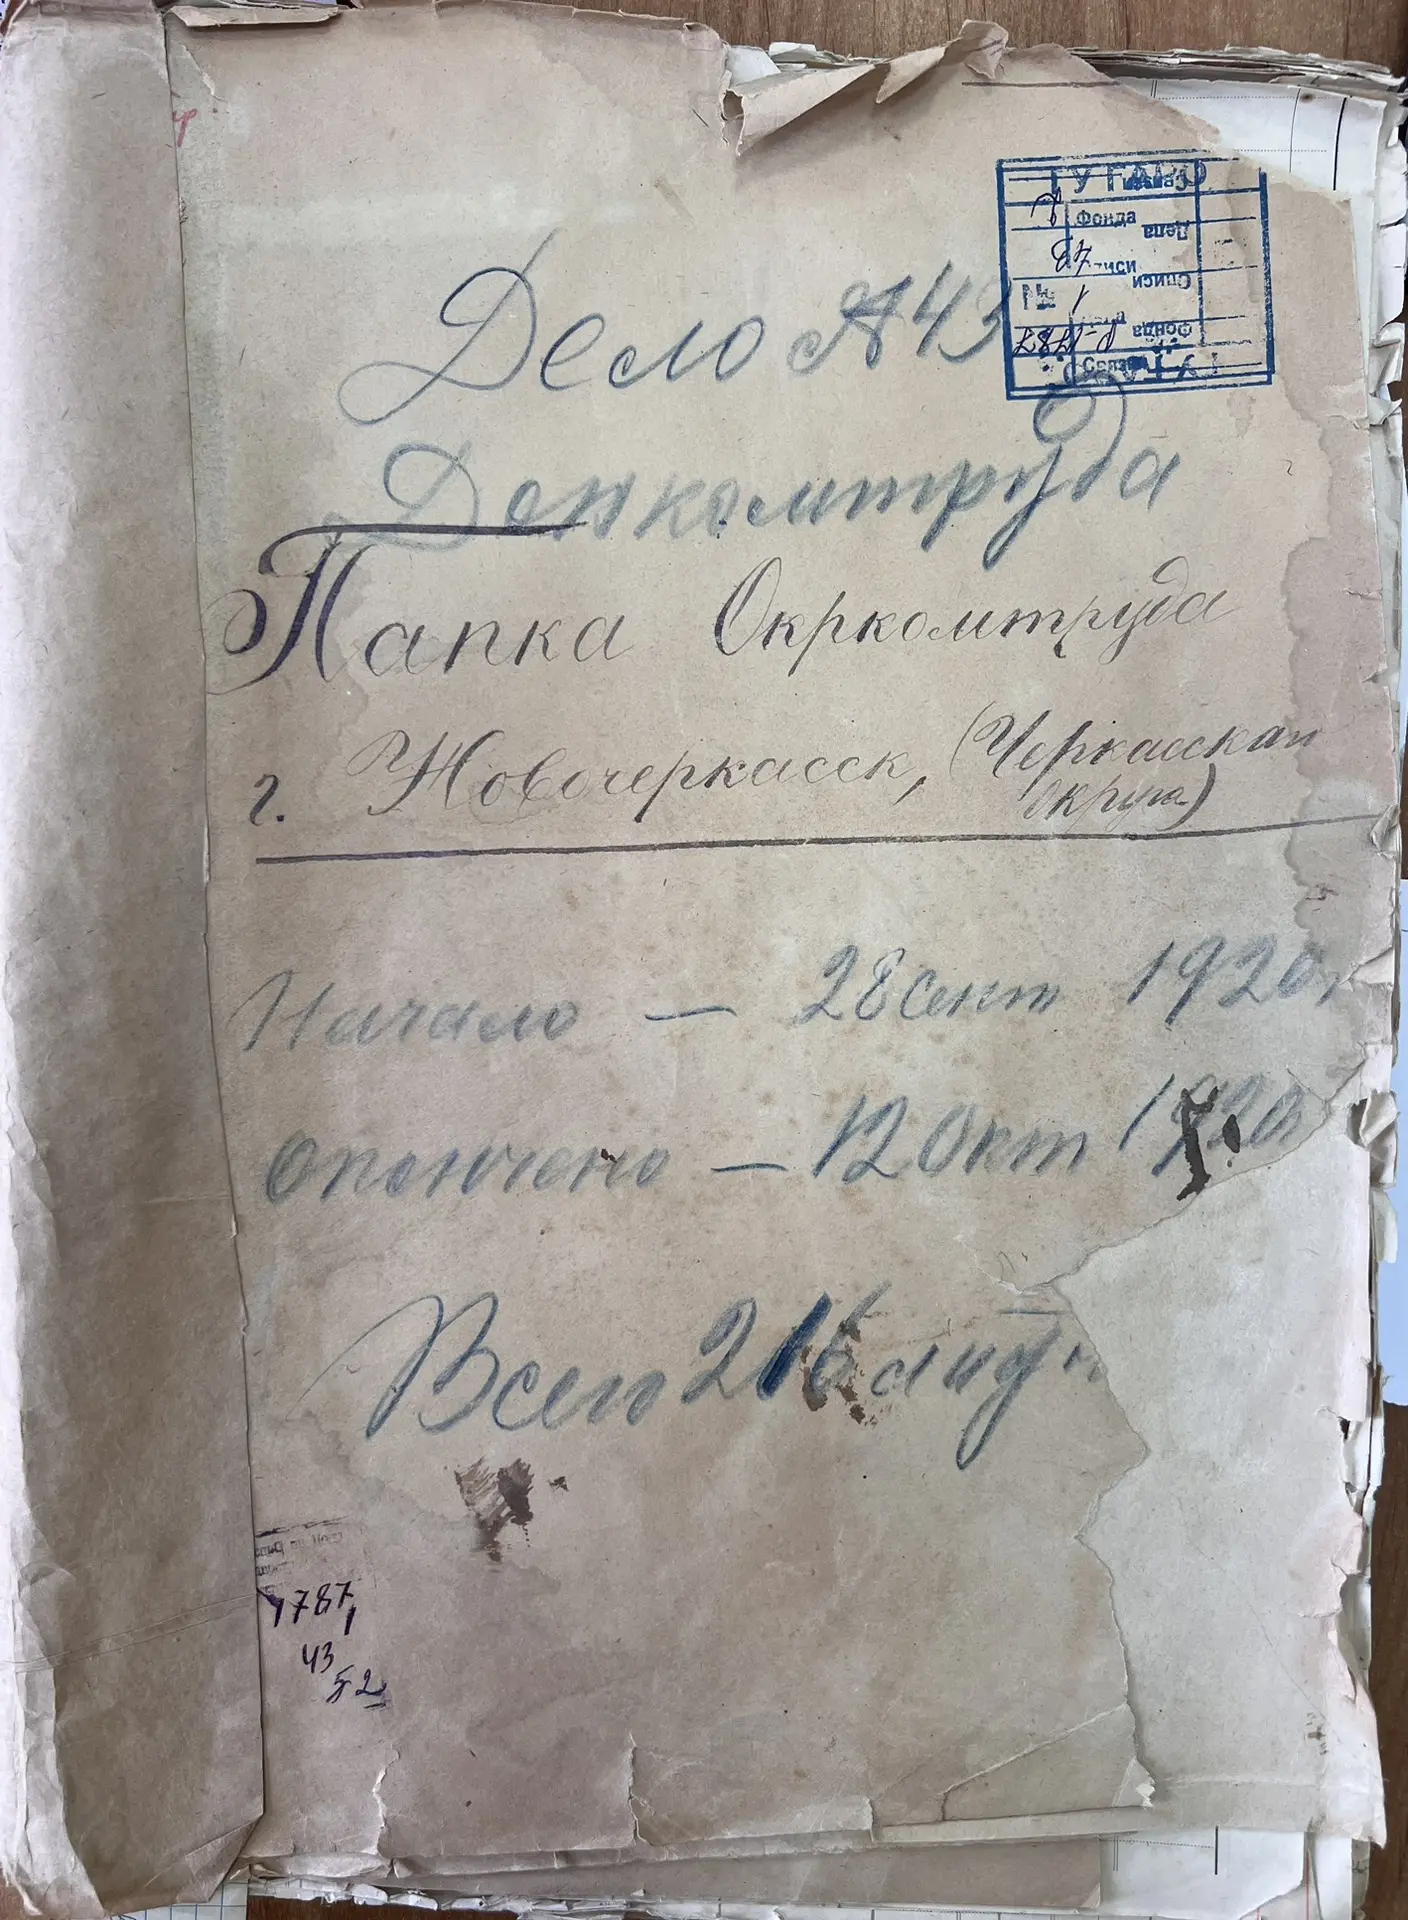 ГУ ГАРО
Фонда
Дела
Описи
№ 1
Фонда
Р-1787
Дело № 43
Донкомтруда
Папка Окркомтруда
г. Новочеркасск, (Черкасскаи
округа)
Начало — 28 сент 1920г
Окончено — 12 Окт 1920
Всего 216
1787
43